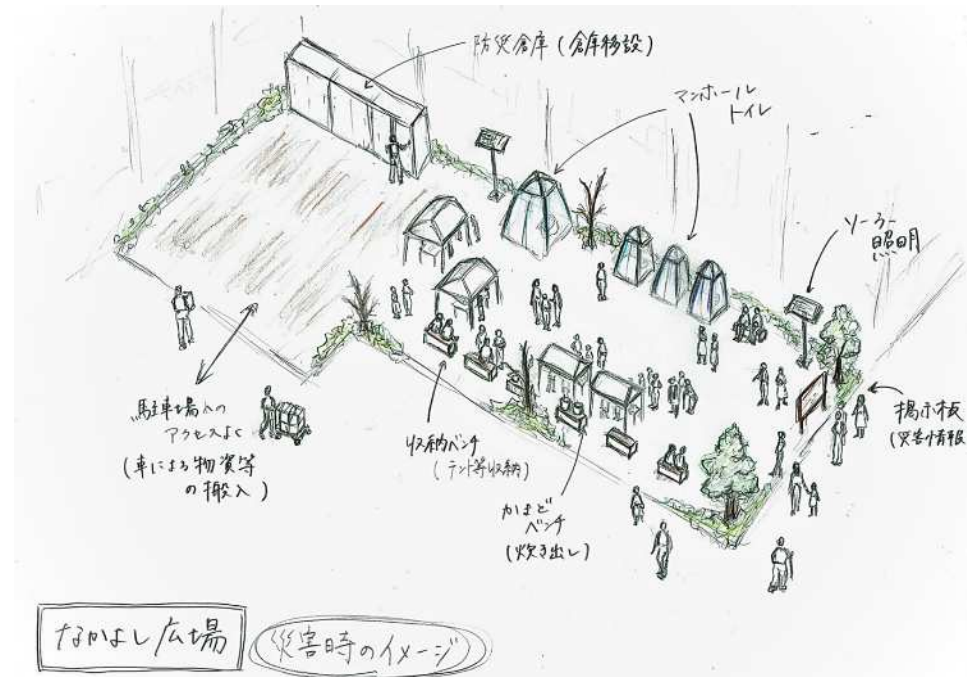 防災倉庫(倉庫移設)
マンホール
トイレ
ソーラー
照明
掲示板
(災害情報
駐車場への
アクセスよく
(車による物資等
の搬入)
収納ベンチ
(テント等収納)
かまど
ベンチ
(炊き出し)
なかよし広場
災害時のイメージ